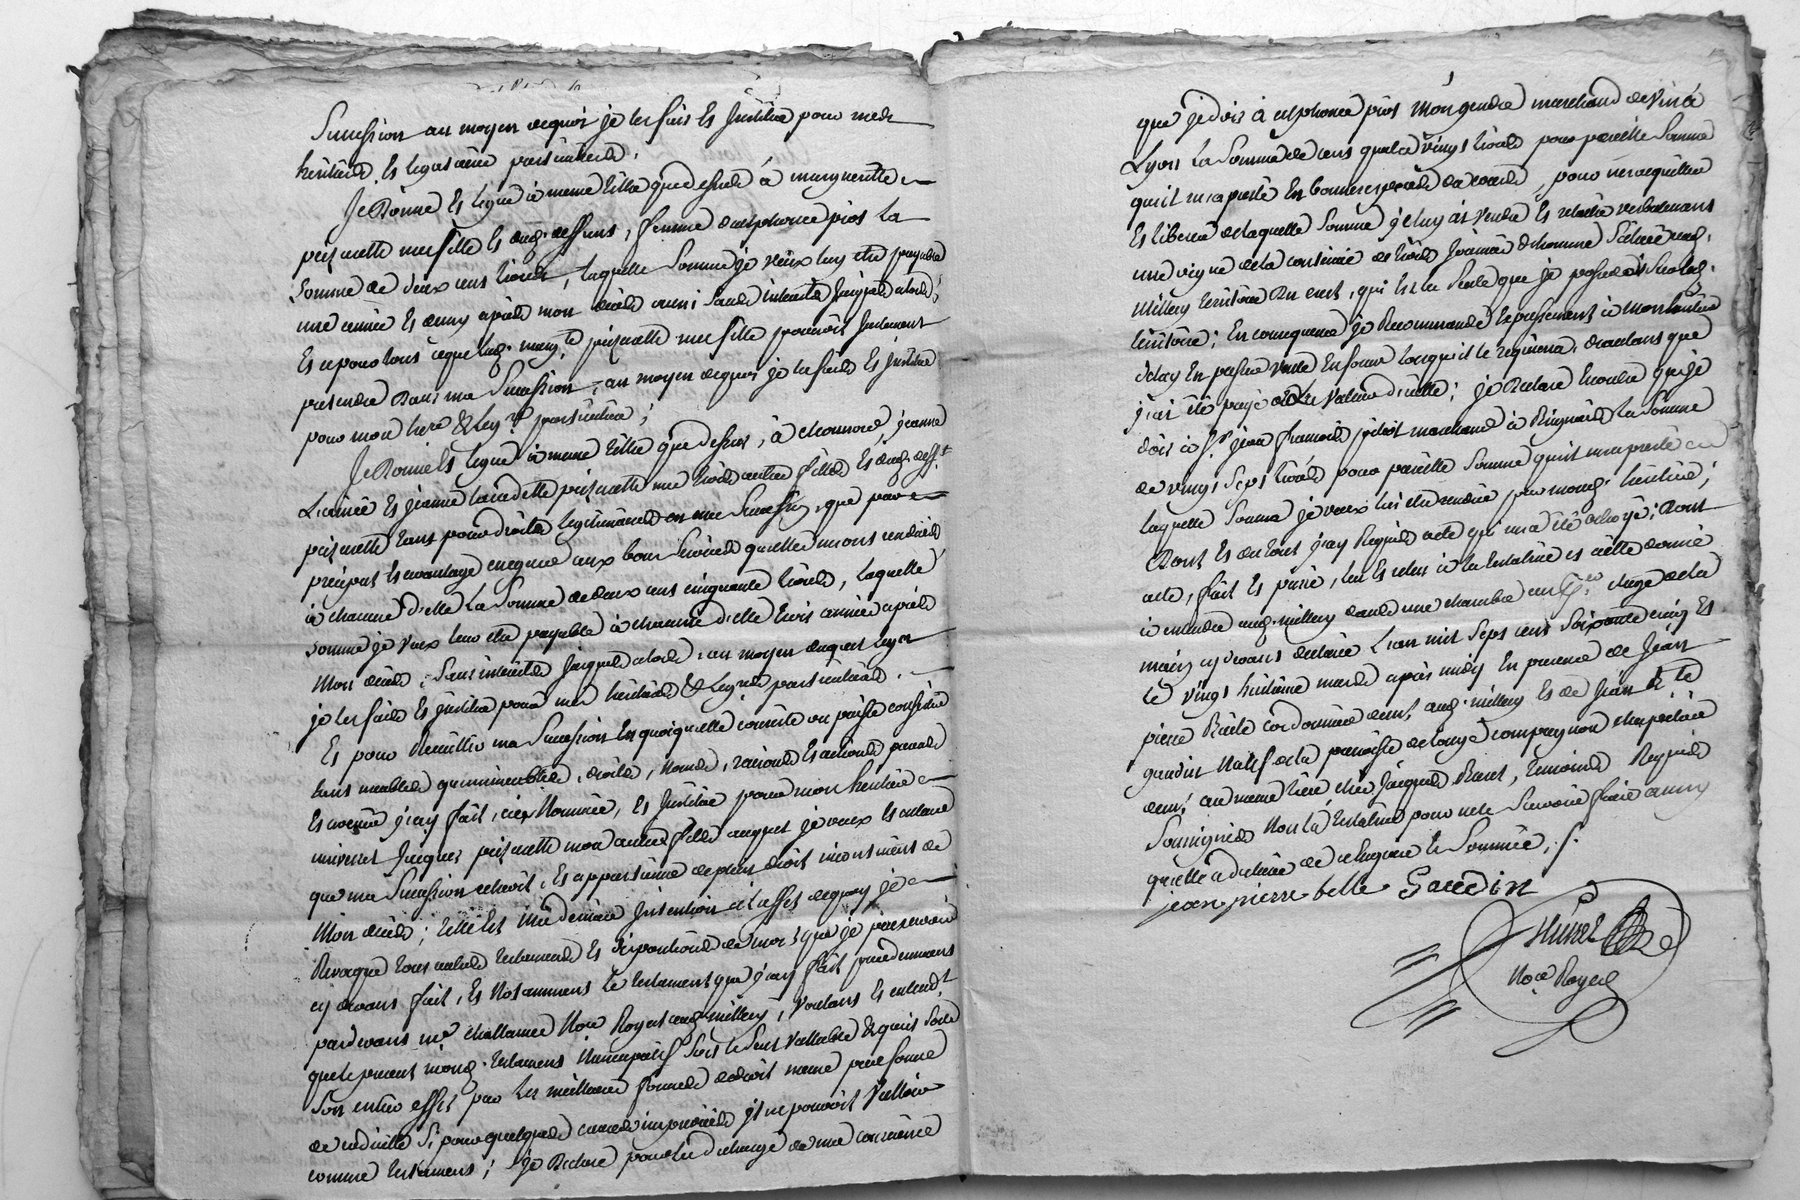 Sucession au moyen dequoi je les fais Et Institue pour mes
héritiers Et légataires particuliers.
Je Donne Et Legue à meme titre que dessus à margueritte
peizarette ma fille Et dud. deffunt, femme dalphonce pios La
Somme de deux cens livres, laquelle Somme je veux luy etre payable
une année Et demy après mon décès aussi Sans interets jusques alors;
Et ce pour tous ce que lad. marg.te peizarette ma fille pouroit justement
pretendre Dans ma Sucession, au moyen dequoi je la fais Et institue
pour mon here & Leg.re particuliere;
Je Donne Et Legue à meme titre que dessus, à eleonore jeanne
L'ainée Et jeanne cadette peizarette mes trois autres filles Et dud. deff.t
peizarette tant pour droits legitimaires en ma Sucession, que par
preciput Et avantage eu egard aux bons Services quelles mons rendües
à chacune d'elle La Somme de deux cens cinquante livres, laquelle
somme je veux leur etre payable à chacune d'elle trois années après
Mon décès, Sans interets jusques alors, au moyen duquel legat
je les fais Et institue pour mes héritières & Legres particulieres.
Et pour Recüillir ma Sucession En quoiquelle consiste ou puisse consister
tant meubles qu'immeubles, droits, noms, raisons Et actions
Et avenir j'ay fait, créé Nommée, Et Institue pour mon heritier
universel Jacques peizarette mon autre fils auquel je veux Et entend
que ma Sucession echoit, Et appartienne de plein droit incontinent de
Mon décès; telle Est Ma derniere Intention à l'effet dequoy je
Revoque tous autres testamens Et dispositions de mort que je pourrois avoir
cy devant fait, Et Notamment le testament que j'ay fait precedemment
pardevant m.e challamel No.re Royal aud. millery, voulant Et entend.t
que le present mond. testament Nuncupatif Soit le Seul vallable & qu'il Sorte
Son entier effet par Les meilleures formes de droit meme par forme
de codicille Si pour quelques causes imprevües il ne pouvoit Valloir
comme testament; je Declare pour la decharge de ma conscience
que je dois à alphonce pios Mon gendre marchand de Vin à
Lyon La Somme de cens quatre vingt livres pour pareille Somme
quil m'a preté En bonnes especes de cours, pour me racquitter
Et liberer de laquelle Somme je luy ai vendu Et relaché verbalement
une vigne de la contenue de trois journées d'homme Scituée aud.
Millery territoire Du cret, qui Est la Seule que je possede Sur led.
territoire; En consequence je Recommande Expressement à Mon héritier
de luy En passer vente En forme lorsquil le requerera, d'autant que
j'ai été payé de La Valeur d'icelle; je Declare Encore que je
dois à S.r jean francois pitiot marchand à Brignais La Somme
de vingt Sept livres pour pareille Somme qu'il m'a preté
laquelle Somme je veux lui etre rendüe par mond. héritier;
Dont Et du tout j'ay Requis acte qui m'a été octroyé; dont
acte, fait Et passé, lu Et relu à la testatrice et icelle donné
à entendre aud. millery dans une chambre au p.er etage de la
maison cy devant declarée L'an mil Sept cens Soixante cinq Et
le vingt huitieme mars après midy En presence de Jean
pierre Belle cordonnier dem.t aud. millery Et de jean B.te
gaudin Natif de la paroisse de longe compagnon charpentier
dem.t au meme lieu chez Jacques Baret, temoins Requis
Soussignés Non la testatrice pour ne le Savoir faire ainsy
qu'elle a declaré de ce Enquise Et Sommée. /.
jean pierre belle Gaudin
No.re Royal